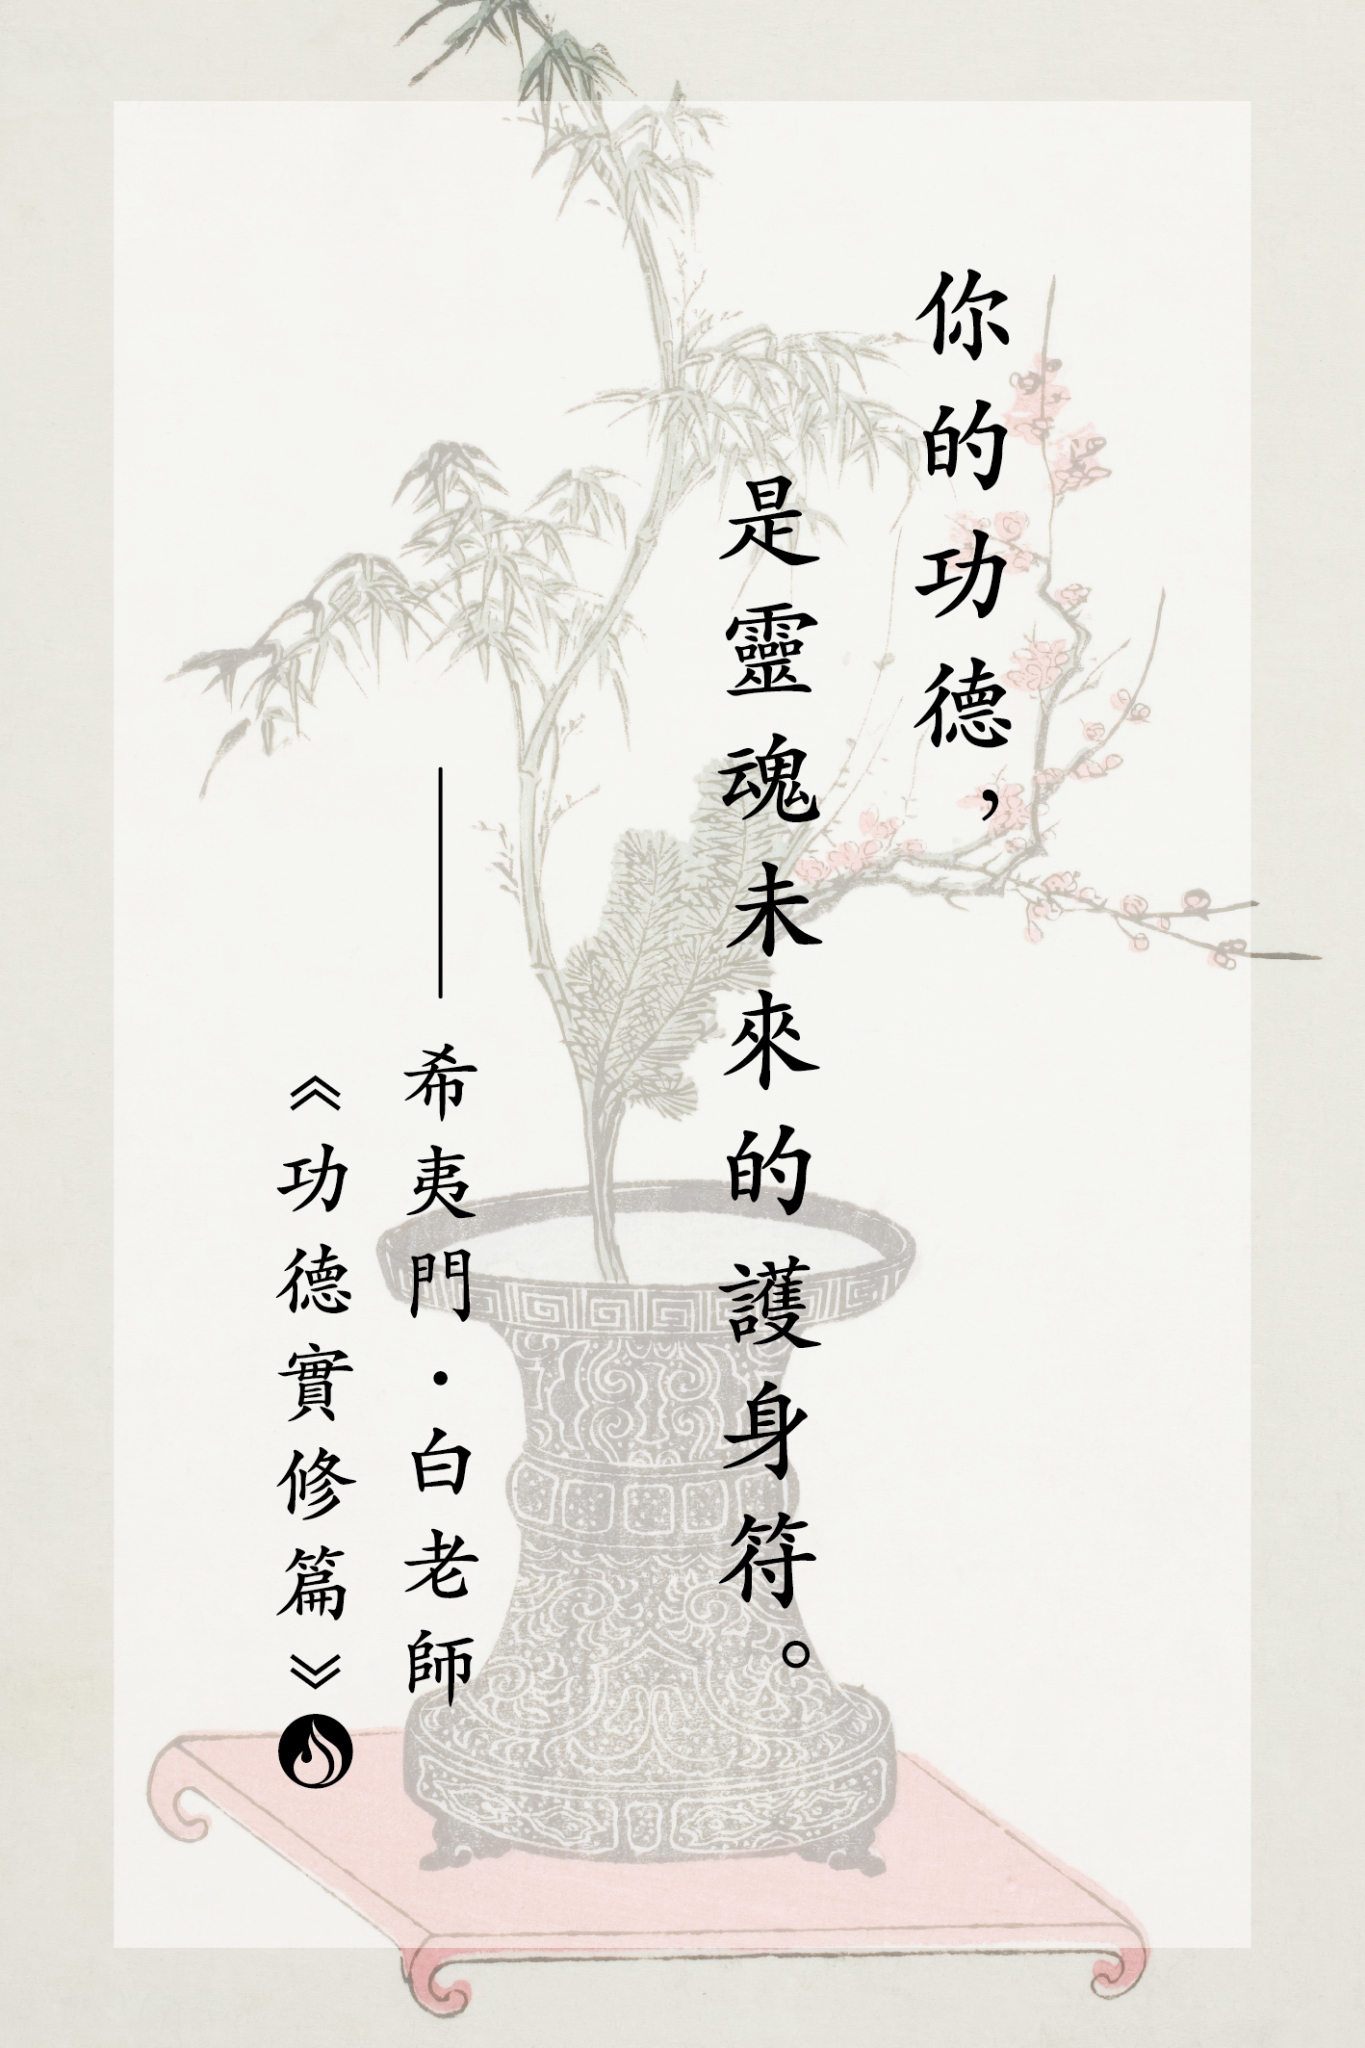 你的功德，
是靈魂未來的護身符。
——希夷門·白老師
《功德實修篇》